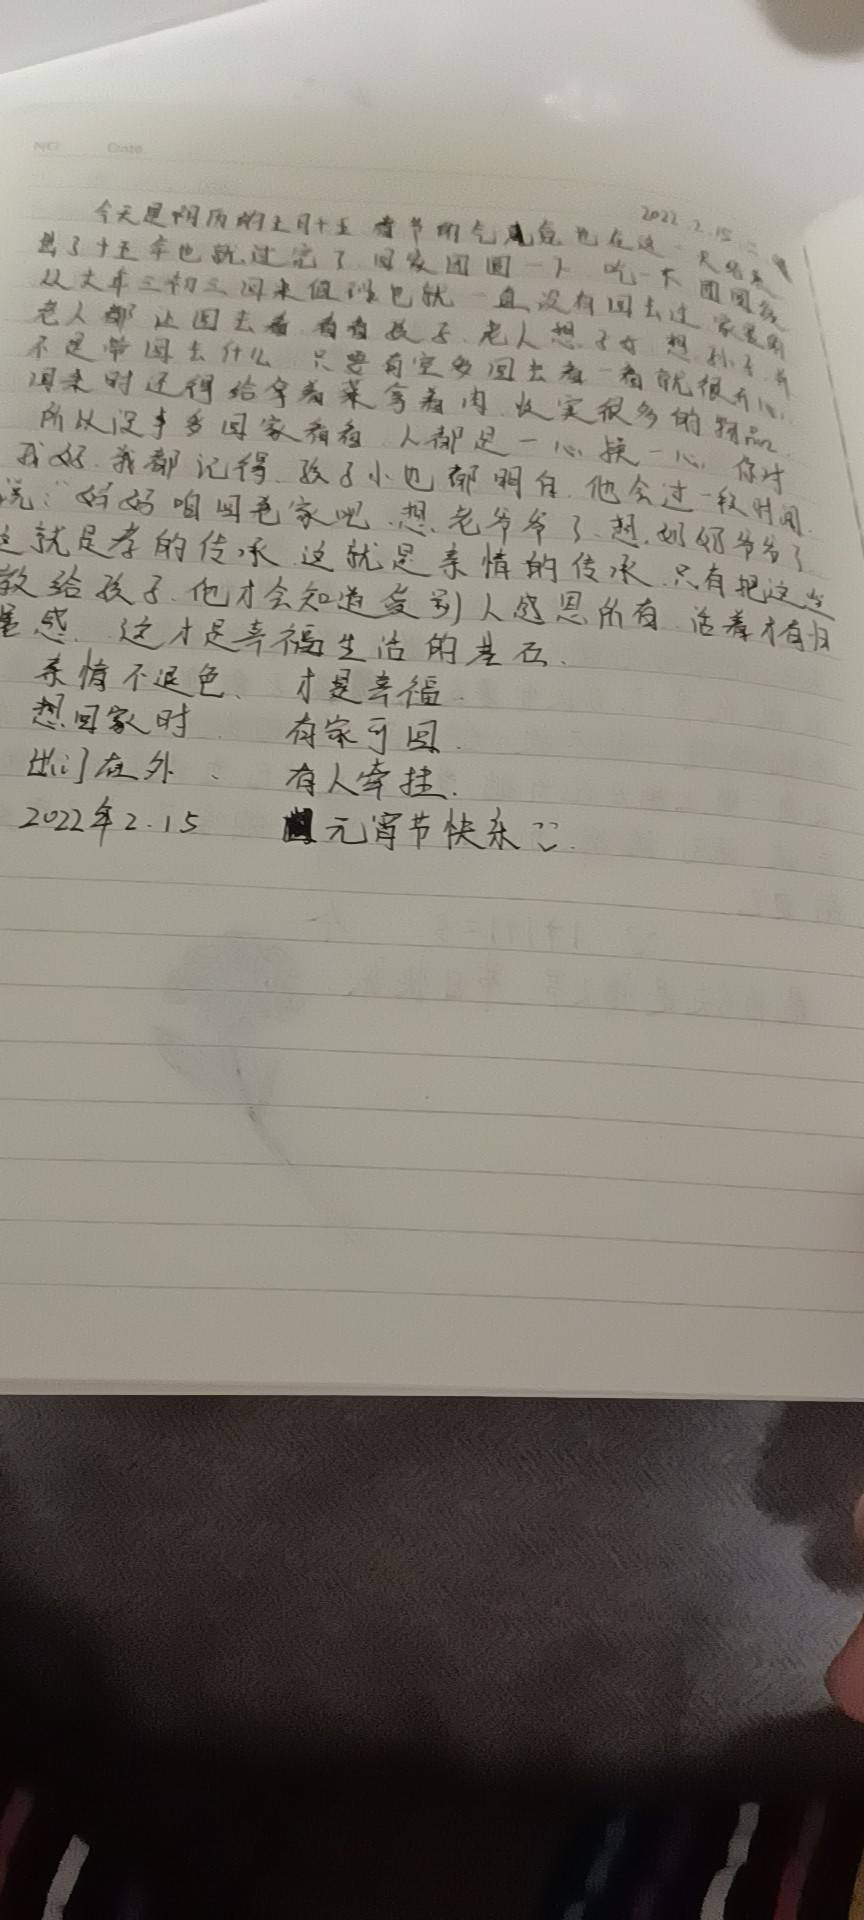 NO Date
2022.2.15
今天是阴历的正月十五 春节的气息也在这一天
过了十五年也就过完了 回家团圆一下 吃一大团圆饭
从大年三初三回来 也就一直没有回去过 家里的
老人都让回去看看孩子 老人想子女 想孙子 并
不是带回去什么 只要有空多回去看一看就很开心
回来时还得给拿着菜拿着肉 很多的物品
所以没事多回家看看 人都是一心换一心 你对
我好 我都记得 孩子小也都明白 他会过一段时间
说：妈妈咱回老家吧 想老爷爷了 想奶奶爷爷了
这就是孝的传承 这就是亲情的传承 只有把这些
教给孩子 他才会知道爱别人感恩所有 活着才有归
属感. 这才是幸福生活的基石.
亲情不退色、 才是幸福.
想回家时 有家可回.
出门在外、 有人牵挂.
2022年2.15 元宵节快乐